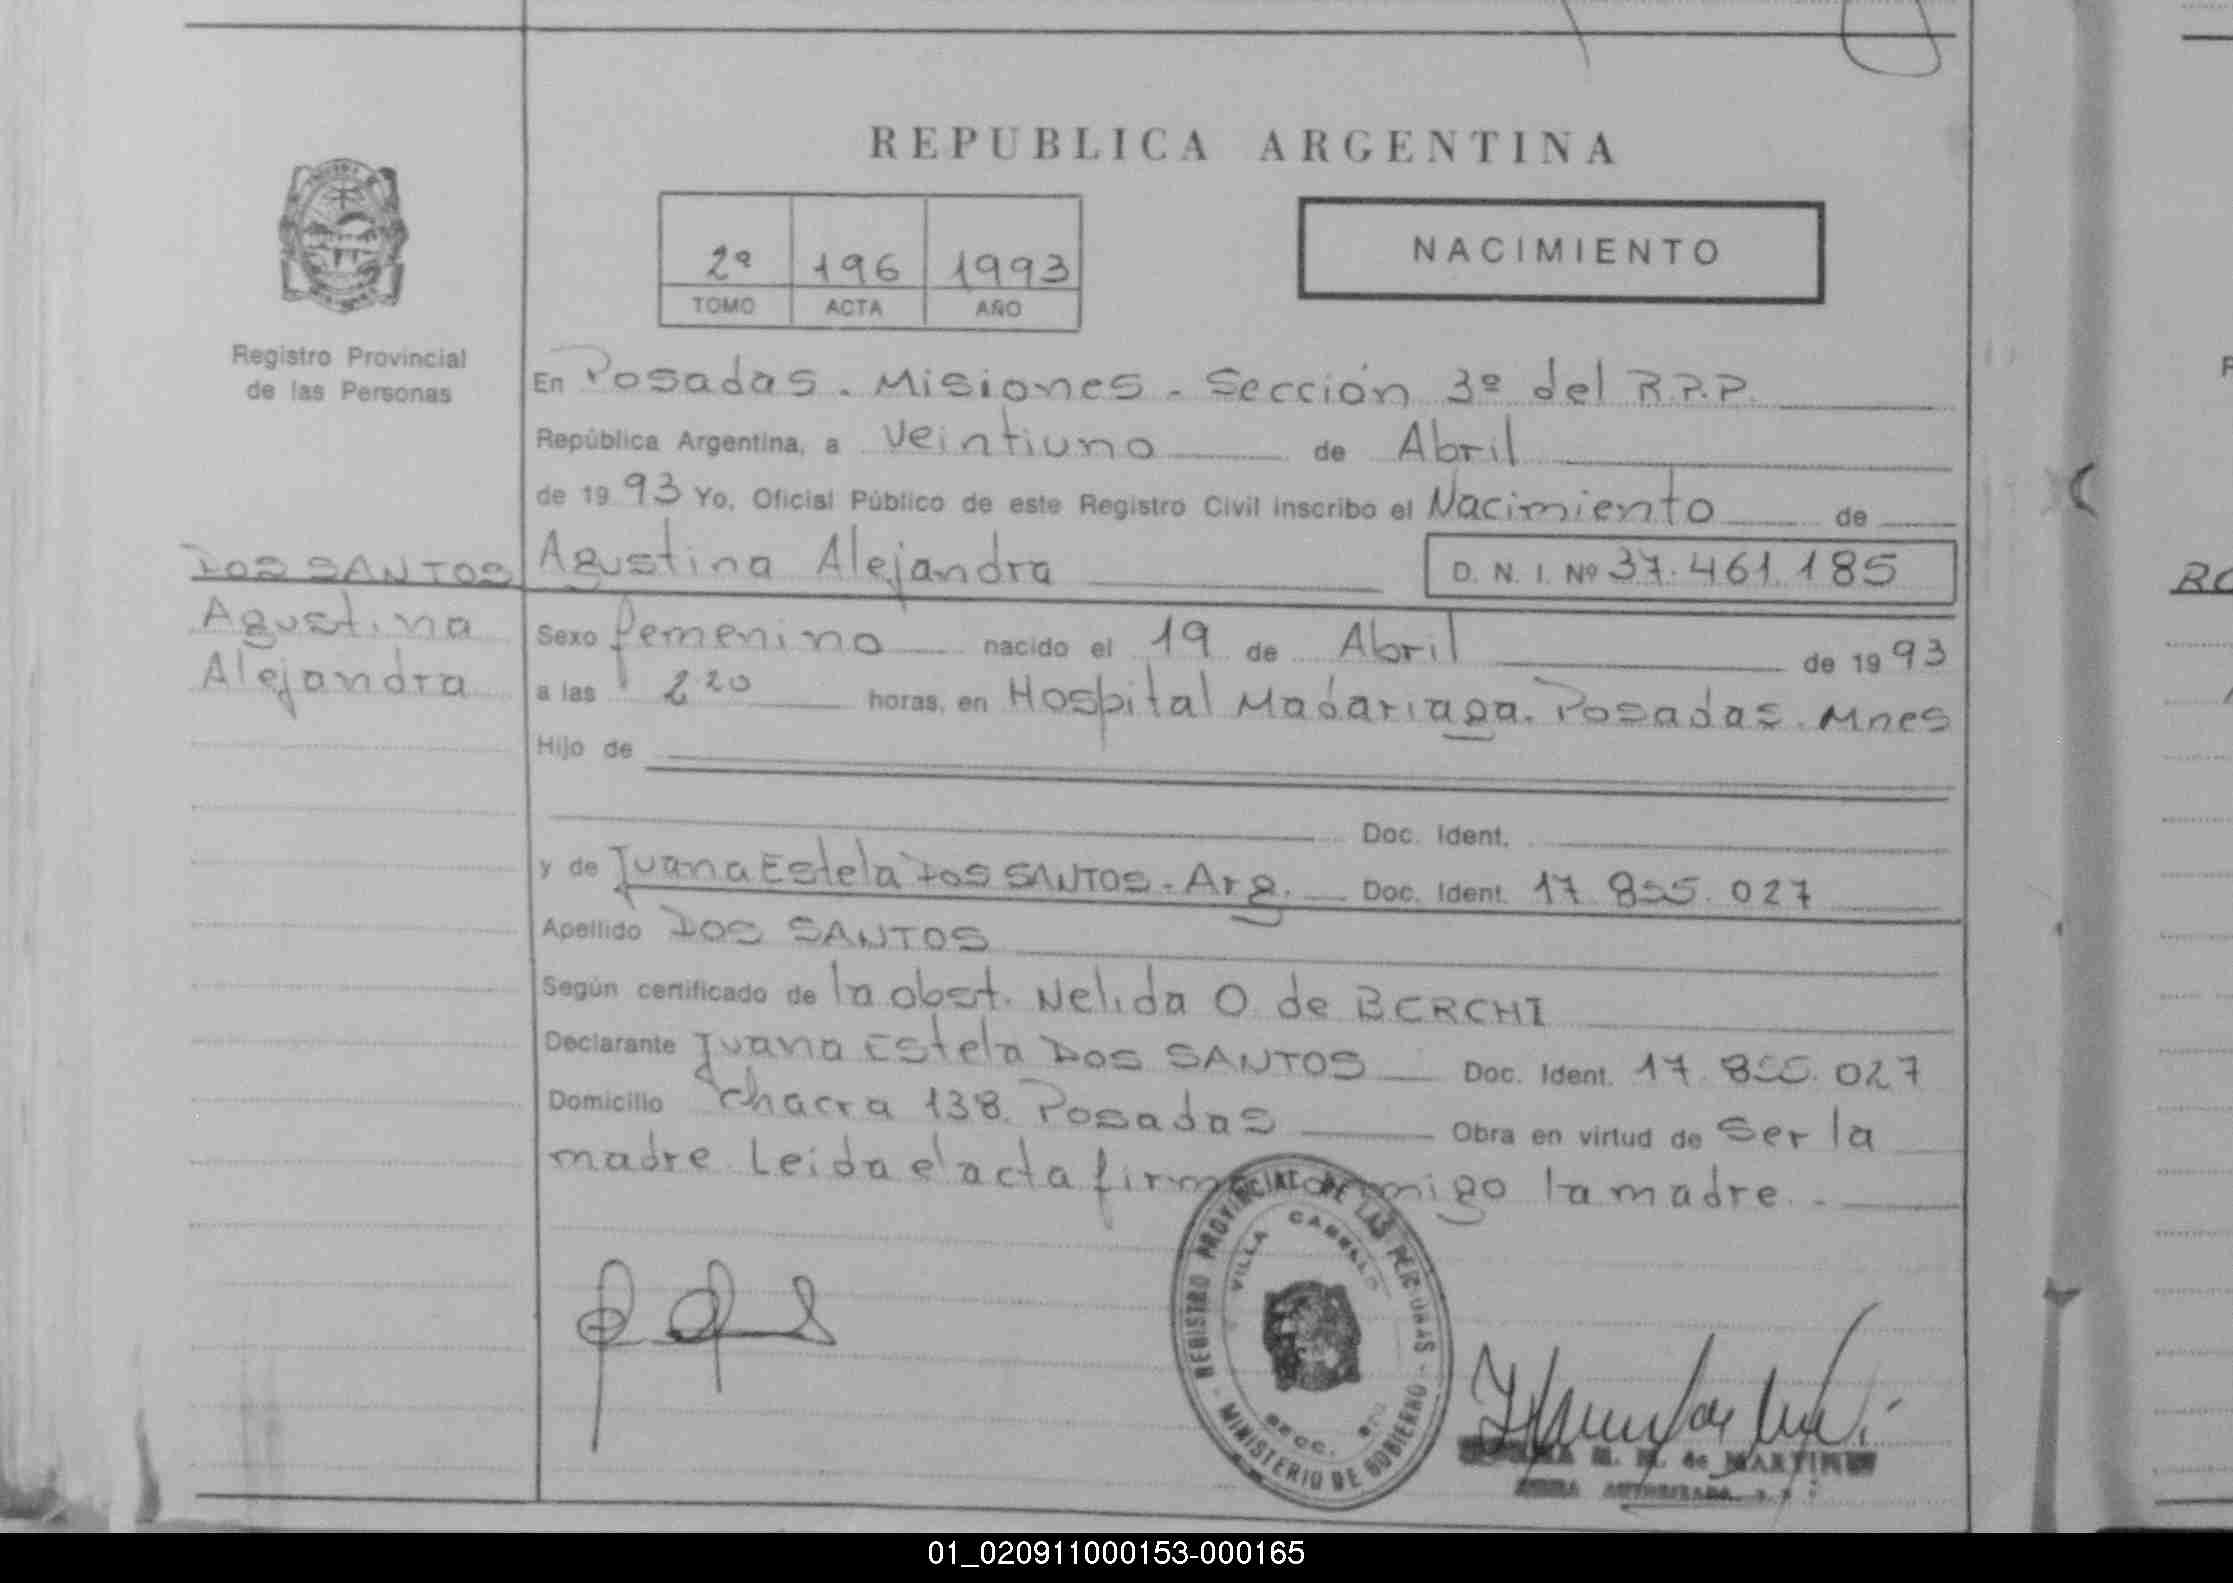 REPUBLICA ARGENTINA
2º 196 1993
TOMO ACTA AÑO
NACIMIENTO
Registro Provincial
de las Personas
En Posadas. Misiones. Sección 3º del R.P.P.
República Argentina, a Veintiuno de Abril
de 1993 Yo, Oficial Público de este Registro Civil inscribo el Nacimiento de
Agustina Alejandra D. N. I. Nº 37.461.185
DOS SANTOS
Agustina
Alejandra
Sexo femenino nacido el 19 de Abril de 1993
a las 2 20 horas, en Hospital Madariaga. Posadas. Mnes
Hijo de
Doc. Ident.
y de Juana Estela DOS SANTOS. Arg. Doc. Ident. 17.855.027
Apellido DOS SANTOS
Según certificado de la obst. Nelida O. de BERCHI
Declarante Juana Estela DOS SANTOS Doc. Ident. 17.855.027
Domicilio Chacra 138. Posadas Obra en virtud de Ser la
madre. Leida el acta firma conmigo la madre.
REGISTRO PROVINCIAL DE LAS PERSONAS
VILLA CABELLO
SECC.
MINISTERIO DE GOBIERNO
M. de MARTINEZ
01_020911000153-000165